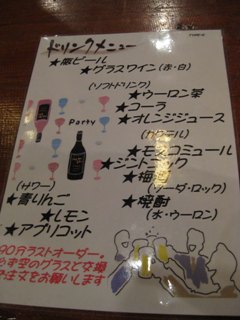 ドリンクメニュー
★瓶ビール
★グラスワイン(赤・白)
(ソフトドリンク)
★ウーロン茶
★コーラ
★オレンジジュース
Party
(カクテル)
★モスコミュール
★ジントニック
★梅酒
(ソーダ・ロック)
★焼酎
(水・ウーロン)
(サワー)
★青りんご
★レモン
★アプリコット
90分ラストオーダー。
必ず空のグラスと交換
で注文をお願いします